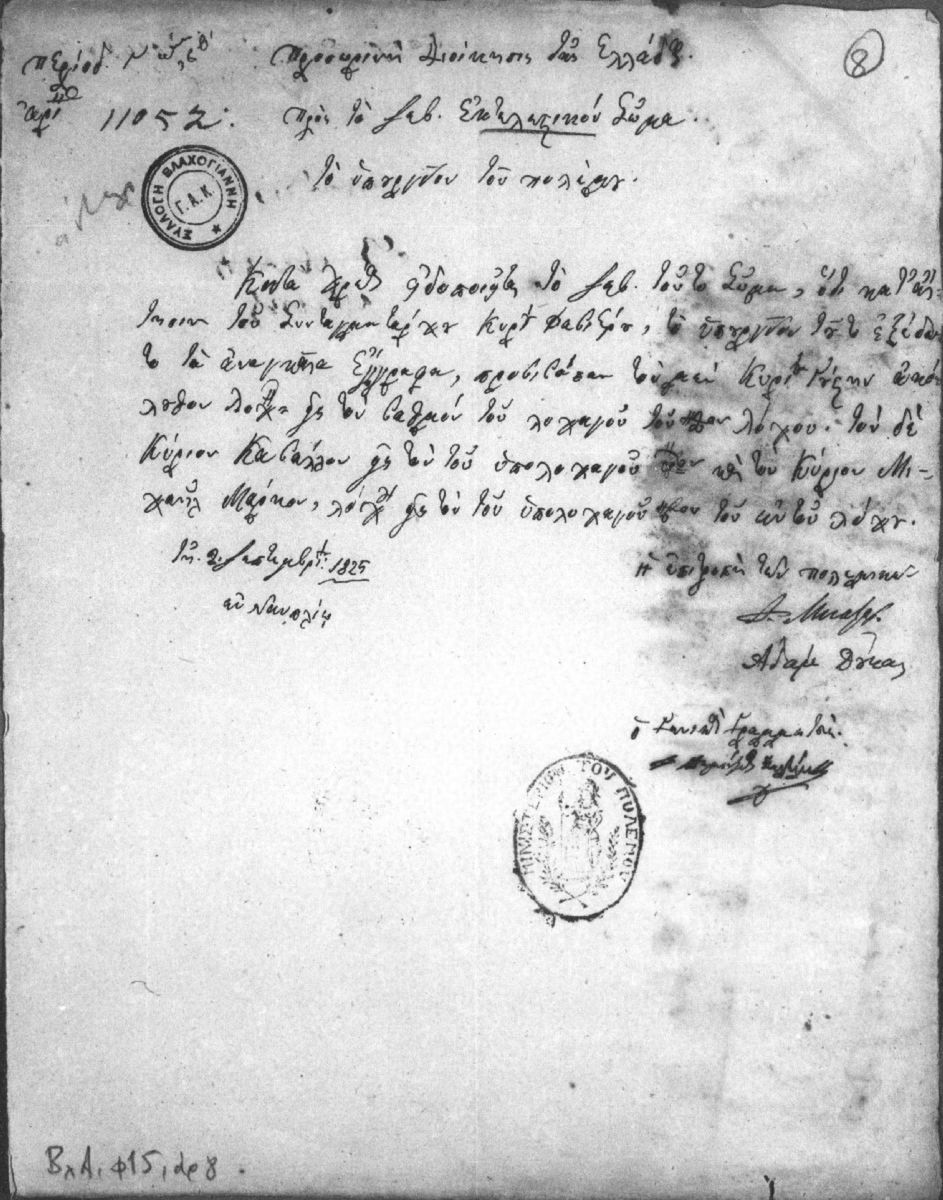 Περίοδ.
Προσωρινὴ Διοίκησις τῆς Ἑλλάδος.
8
ἀρι 11052:
Πρὸς τὸ Σεβ. Ἐκτελεστικόν Σῶμα.
Τὸ ὑπουργεῖον τοῦ πολέμου.
ΣΥΛΛΟΓΗ ΒΛΑΧΟΓΙΑΝΝΗ
Γ.Α.Κ.
Κατὰ χρέος εἰδοποιεῖται τὸ Σεβ. τοῦτο Σῶμα, ὅτι κατ' αἴ-
τησιν τοῦ Συνταγματάρχου Κυρίου Φαβιέρου, τὸ ὑπουργεῖον τοῦτο ἐξέδω
το τὰ ἀναγκαῖα ἔγγραφα, προβιβάσαν τὸν μὲν Κύριον
εἰς τὸν βαθμόν τοῦ λοχαγοῦ τοῦ λόχου. τὸν δὲ
Κύριον Καβάλλον εἰς τὸν τοῦ ὑπολοχαγοῦ καὶ τὸν Κύριον Μι-
χαὴλ Μάρκον, εἰς τὸν τοῦ ὑπολοχαγοῦ τοῦ αὐτοῦ λόχου.
Τῇ 2 Σεπτεμβρίου: 1825
ἐν Ναυπλίῳ
Ἡ ἐπιτροπὴ τῶν πολεμικῶν
Ἀδάμ Δούκας
ὁ Γενικὸς Γραμματεύς.
ΜΙΝΙΣΤΕΡΙΟΝ ΤΟΥ ΠΟΛΕΜΟΥ
Βλ Α, φ15, αρ 8.